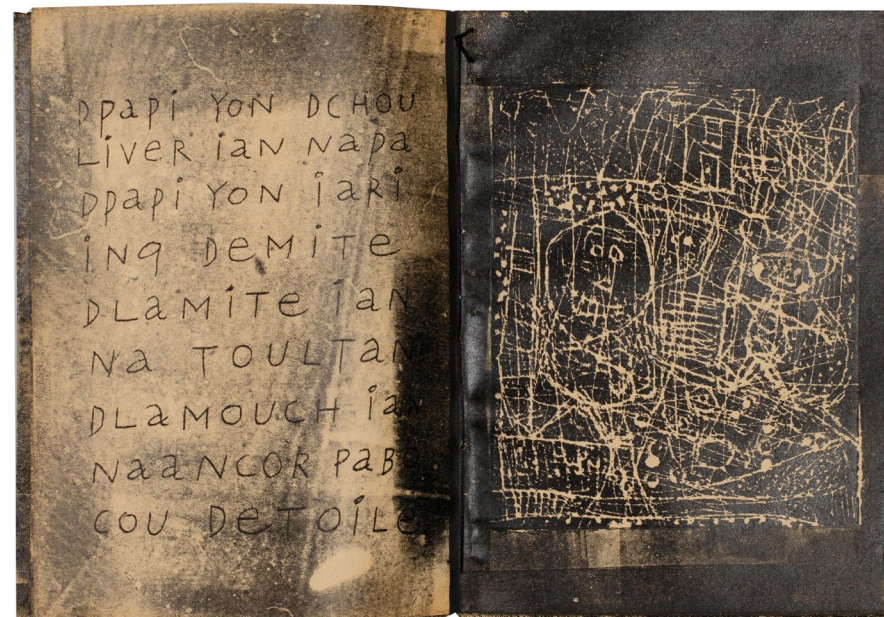 DPaPi YON DCHOU
LiVeR iaN NaPa
DPaPi YON iaRi
iNq DeMiTe
DLaMiTe iaN
Na TOULTaN
DLaMOUCH iaN
NaaNCOR PaBO
COU DeTOiLe